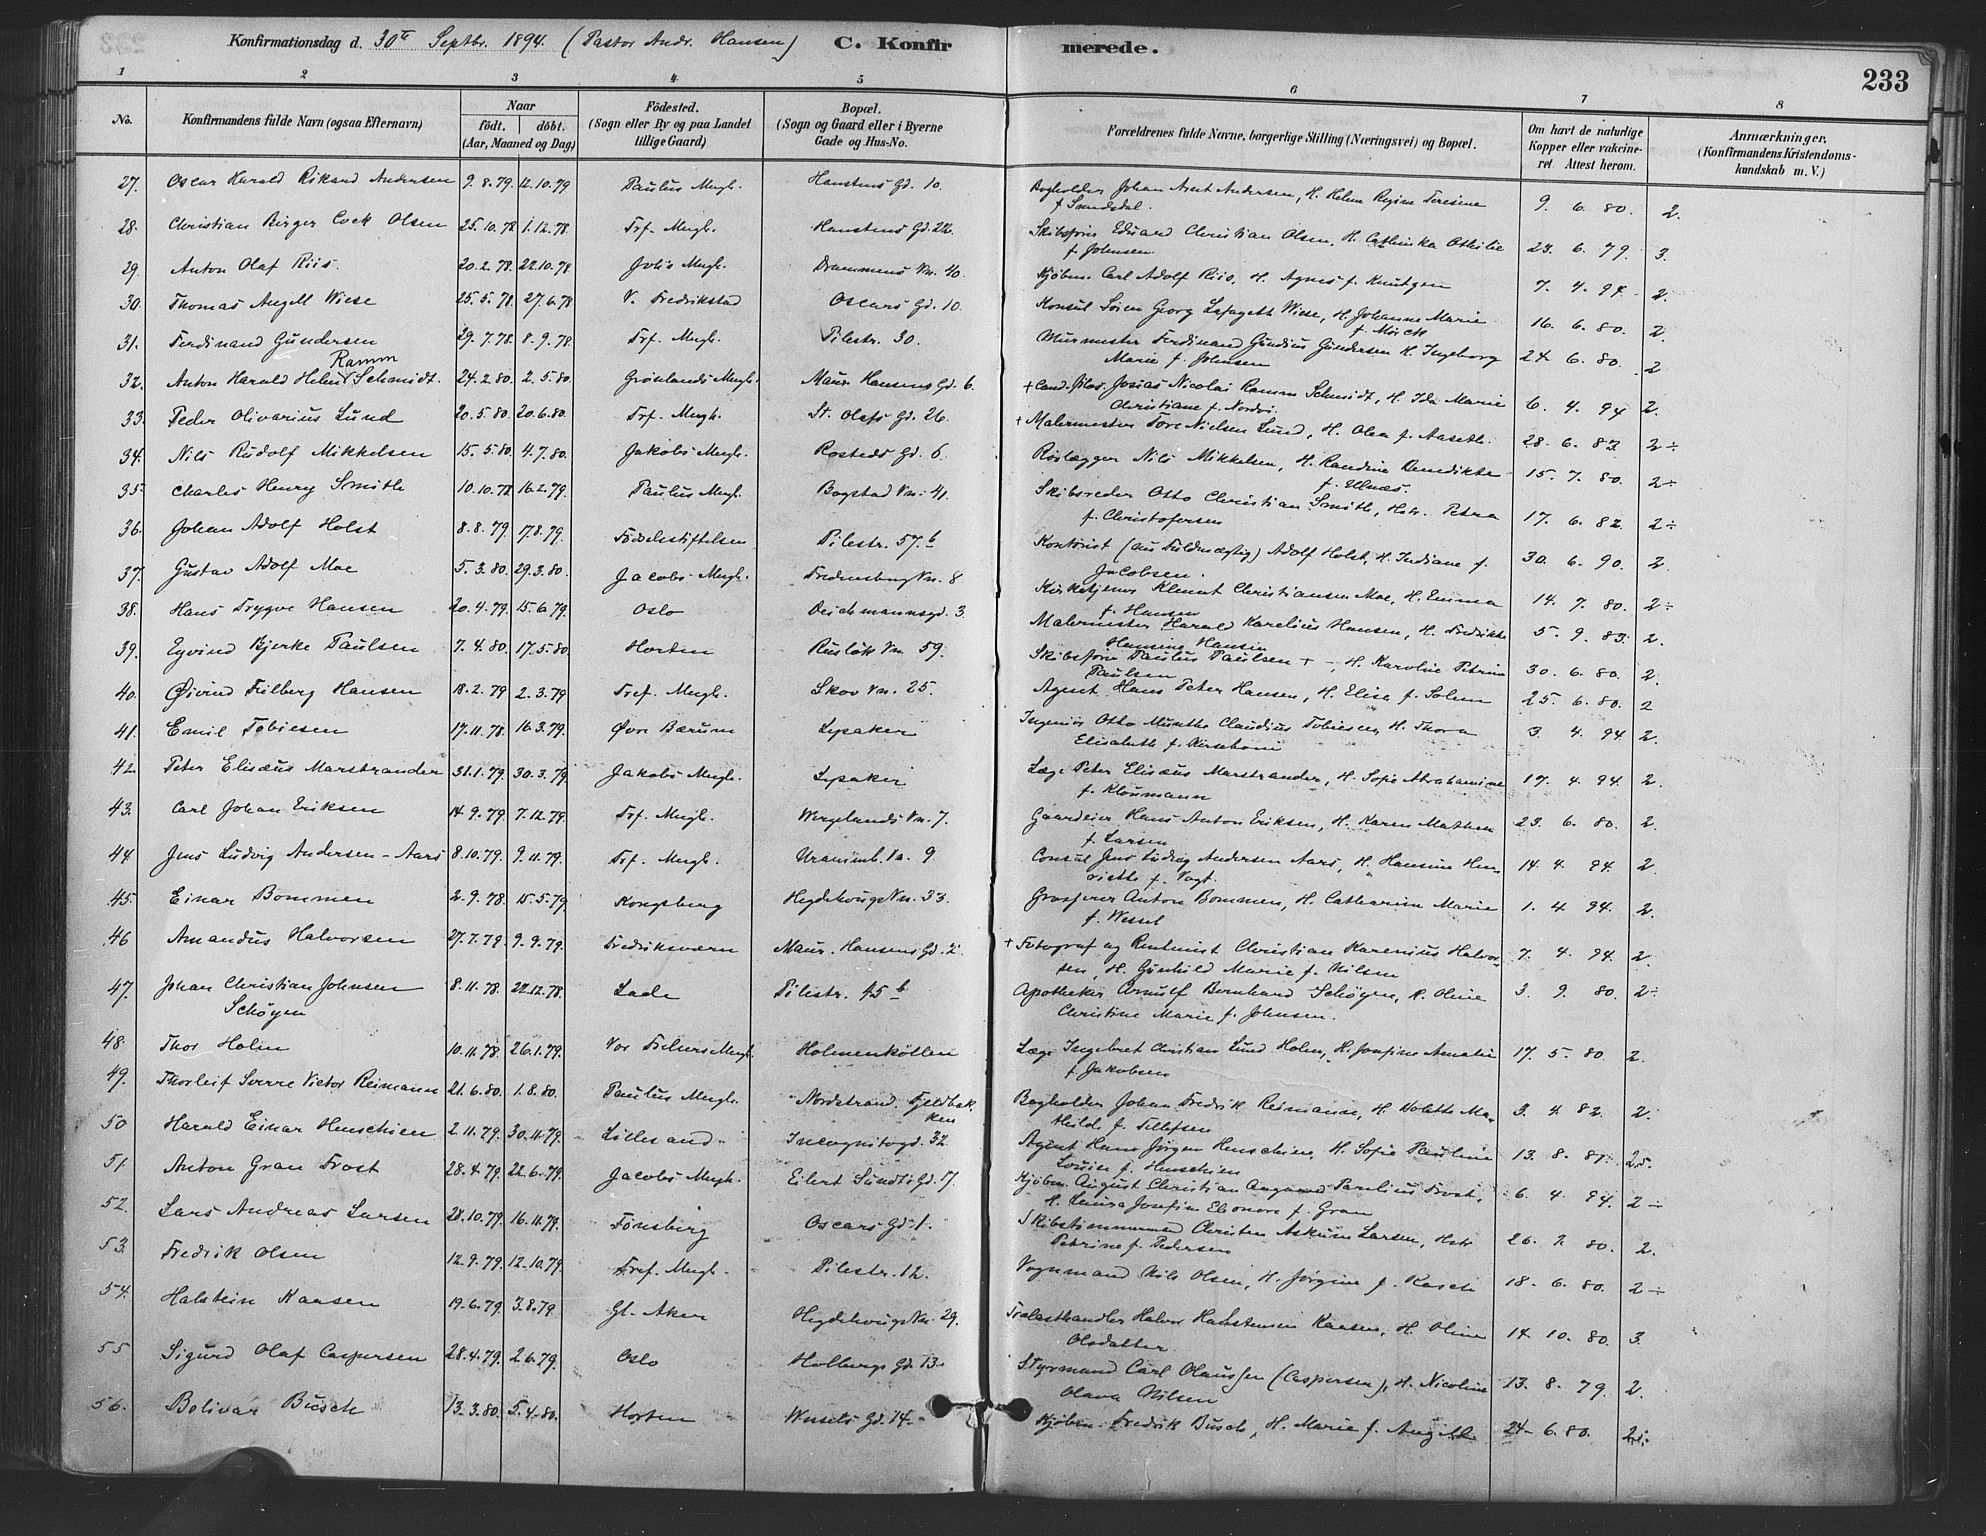 Konfirmationsdag d. 30te Septbr. 1894. (Pastor Andr. Hansen) C. Konfir merede.
233
1 2 3 4 5 6 7 8
No. Konfirmandens fulde Navn (ogsaa Efternavn) Naar födt. döbt. (Aar, Maaned og Dag) Födested. (Sogn eller By og paa Landet tillige Gaard) Bopæl. (Sogn og Gaard eller i Byerne Gade og Hus-No. Forældrenes fulde Navne, borgerlige Stilling (Næringsvei) og Bopæl. Om havt de naturlige Kopper eller vakcineret. Attest herom. Anmærkninger, (Konfirmandens Kristendomskundskab m. V.)
27. Oscar Harald Rikard Andersen 9.8.79 12.10.79 Paulus Mngh. Hanstens Gd. 10. Bogholder Johan Arnt Andersen, H. Helene Regine Teresine 9. 6. 80. 2.
f. Sundsdal.
28. Christian Birger Cock Olsen 25.10.78 1.12.78. Trf. Mngh. Hanstens Gd. 22. Skibsfører Eduard Christian Olsen, H. Cathinka Othilie 23. 6. 79. 3.
f. Johnsen
29. Anton Olaf Riis. 20.2.78. 22.10.78 Joh's Mngh. Drammens Vn. 40. Kjøbm. Carl Adolf Riis, H. Agnes f. Knutzen 7. 4. 94. 2.
30. Thomas Angell Wiese 25.5.78. 27.6.78 V. Fredrikstad Oscars Gd. 10. Konsul Sören Georg Lafayett Wiese, H. Johanne Marie 16. 6. 80. 2.
f. Mörck
31. Ferdinand Gundersen 29.7.78. 8.9.78 Trf. Mngh. Pilestr. 30. Murmester Ferdinand Gundius Gundersen H. Ingeborg 24 6. 80. 2
Marie f. Johnsen
Ramm
32. Anton Harald Helms Schmidt. 24.2.80. 2.5.80. Grønlands Mngh. Maur. Hansens Gd. 6. + Cand. filos. Josias Nicolai Ramm Schmidt, H. Ida Marie 6. 4. 94 2.
Christiane f. Nordvi.
33. Peder Olivarius Lund 20.5.80. 20.6.80. Trf. Mngh. St. Olafs Gd. 26. + Malermester Tore Nielsen Lund, H. Olea f. Aaseth. 28. 6. 83. 2÷
34. Nils Rudolf Mikkelsen 15.5.80. 4.7.80. Jakobs Mngh. Rosteds Gd. 6. Rørlægger Nils Mikkelsen, H. Randine Benedikte 15. 7. 80. 2÷
f. Ulnæs.
35. Charles Henry Smith 10.10.78 16.2.79. Paulus Mngh. Bogstad Vn. 41. Skibsreder Otto Christian Smith, Hstr. Petra 17. 6. 82. 2÷
f. Christofersen
36. Johan Adolf Holst 8.8.79 17.8.79. Fødselsstiftelsen Pilestr. 57.b Kontorist (au Fuldmægtig) Adolf Holst, H. Indiane f. 30. 6. 90. 2.
Jacobsen.
37. Gustav Adolf Moe 5.3.80. 29.3.80. Jacobs Mngh. Fredensborg Vn. 8 Kirketjener Klemet Christiansen Moe, H. Emma 14. 7. 80. 2÷
f. Hansen
38. Hans Trygve Hansen 20.4.79. 15.6.79. Oslo Deichmannsgd. 3. Malermester Harald Karelius Hansen, H. Fredrikke 5. 9. 83. 2.
Hansine Hansen
39. Eyvind Bjerke Paulsen 7.4.80. 17.5.80 Horten Rusløk Vn. 59. Skibsfører Paulus Paulsen + –, H. Karoline Petrine 30. 6. 80. 2.
Paulsen
40. Øivind Filberg Hansen 18.2.79 2.3.79 Tref. Mngh. Skov Vn. 25. Agent Hans Peter Hansen, H. Elise f. Solem 25. 6. 80. 2
41. Emil Tobiesen 17.11.78. 16.3.79. Øvre Bærum Lysaker Ingeniør Otto Munthe Claudius Tobiesen, H. Thora 3. 4. 94 2.
Elisabeth f. Kirsebom
42. Peter Elisæus Marstrander 31.1.79. 30.3.79. Jakobs Mngh. Lysaker Læge Peter Elisæus Marstrander, H. Sofie Abrahamine 17. 4. 94. 2.
f. Kloumann
43. Carl Johan Eriksen 14.9.79 7.12.79. Trf. Mngh. Wergelands Vn. 7. Gaardeier Hans Anton Eriksen, H. Karen Mathea 23. 6. 80. 2.
f. Larsen
44 Jens Ludvig Andersen-Aars 8.10.79. 9.11.79 Trf. Mngh. Uranienb. Vn. 9 Consul Jens Ludvig Andersen Aars, H. Hansine Hen- 14. 4. 94. 2
riette f. Vogt.
45. Einar Bommen 2.9.78. 15.5.79 Kongsberg Hegdehougs Vn. 33. Grosserer Anton Bommen, H. Catharina Marie 1. 4. 94. 2.
f. Wessel
46 Amandus Halvorsen 27.7.79. 9.9.79. Fredriksværn Maur. Hansens Gd. 2. + Fotograf og Rentenist Christian Karenius Halvor- 7. 4. 94. 2.
sen, H. Gunhild Marie f. Nilsen
47. Johan Christian Johnsen 8.11.78. 22.12.78. Lade Pilestr. 45 b. Apotheker Arnulf Bernhard Schøyen, H. Oline 3. 9. 80. 2÷
Schøyen Christine Marie f. Johnsen.
48. Thor Holm 10.11.78. 26.1.79. Vor Frelsers Mngh. Holmenkollen Læge Ingebret Christian Lund Holm, H. Josefine Amalie 17. 5. 80. 2.
f. Jakobsen
49. Thorleif Sverre Victor Reimann 21.6.80. 1.8.80. Paulus Mngh. Nordstrand. Fjeldbak- Bogholder Johan Fredrik Reimann, H. Nolette Ma- 3. 4. 82. 2.
ken thilde f. Tellefsen
50 Harald Einar Henschien 2.11.79. 30.11.79. Lillesand Incognitogd. 32. Agent Hans Jørgen Henschien, H. Sofie Pauline 13. 8. 81. 2.
Louise f. Henschien
51. Anton Gran Frost 28.4.79. 22.6.79. Jacobs Mngh. Eilert Sundts Gd. 17. Kjøbm. August Christian Aagaard Parelius Frost, 6. 4. 94. 2÷
H. Laura Josefine Eleonore f. Gran
52. Lars Andreas Larsen 21.10.79. 16.11.79. Tønsberg Oscars Gd. 1. Skibstømmermand Christen Askum Larsen, Hstr. 26. 7. 80. 2.
Petrine f. Pedersen
53. Fredrik Olsen 12.9.79. 12.10.79. Tref. Mngh. Pilestr. 12. Vognmand Nils Olsen, H. Jørgine f. Rasch 18. 6. 80. 2÷
54. Halstein Kaasen 19.6.79. 3.8.79. Gl. Aker Hegdehougs Vn. 29. Trælasthandler Halvor Halstensen Kaasen, H. Oline 14. 10. 80. 3.
Olsdatter
55 Sigurd Olaf Caspersen 28.4.79. 2.6.79. Oslo Holbergs Gd. 13. Styrmand Carl Olaussen (Caspersen), H. Nicoline 13. 8. 79. 2.
Olava Nilsen
56. Bolivar Busch 13.3.80. 5.4.80. Horten Wessels Gd. 14. Kjøbm. Fredrik Busch, H. Marie f. Angell 24. 6. 80. 2.